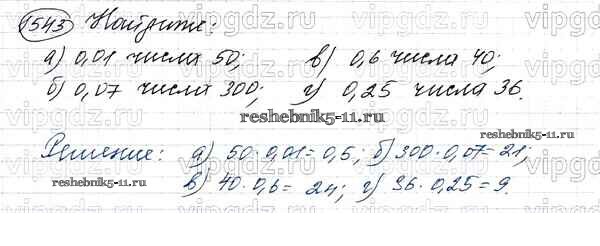 1543 Найдите:
а) 0,01 числа 50; в) 0,6 числа 40;
б) 0,07 числа 300; г) 0,25 числа 36.
reshebnik5-11.ru
reshebnik5-11.ru
Решение: а) 50·0,01=0,5; б) 300·0,07=21;
reshebnik5-11.ru в) 40·0,6=24; г) 36·0,25=9.
vipgdz.ru vipgdz.ru vipgdz.ru